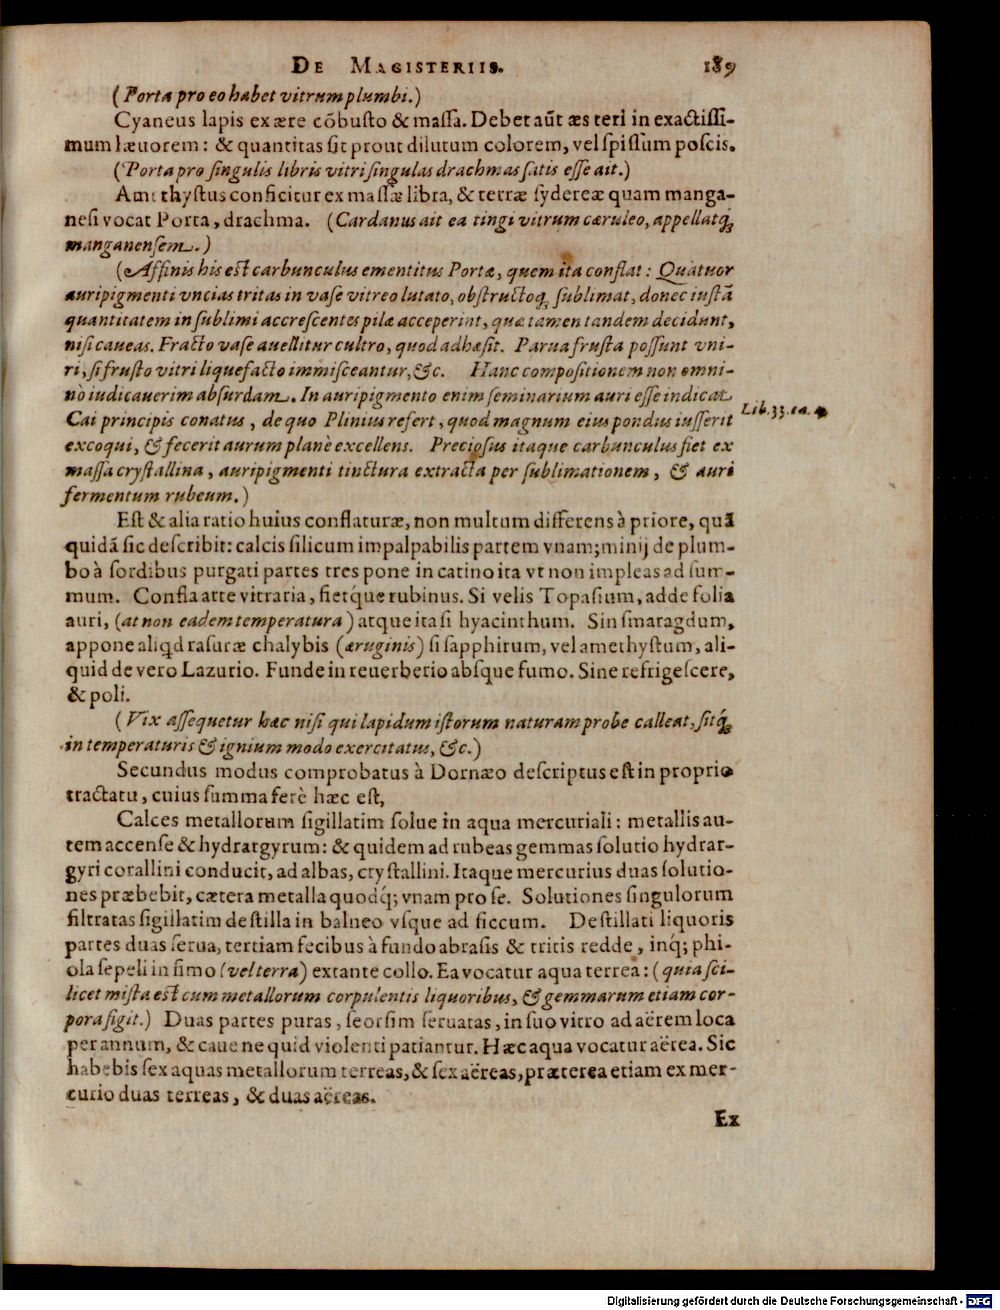 DE MAGISTERIIS. 189
(Porta pro eo habet vitrum plumbi.)
Cyaneus lapis ex ære cõbusto & massa. Debet aũt æs teri in exactissi-
mum læuorem: & quantitas sit prout dilutum colorem, vel spissum poscis.
(Porta pro singulis libris vitri singulas drachmas satis esse ait.)
Amethystus conficitur ex massæ libra, & terræ sydereæ quam manga-
nesi vocat Porta, drachma. (Cardanus ait ea tingi vitrum cæruleo, appellatq́;
manganensem.)
(Affinis his est carbunculus ementitus Portæ, quem ita conflat: Quatuor
auripigmenti vncias tritas in vase vitreo lutato, obstructoq; sublimat, donec iustã
quantitatem in sublimi accrescentes pilæ acceperint, quæ tamen tandem decidunt,
nisi caueas. Fracto vase auellitur cultro, quod adhæsit. Parua frusta possunt vni-
ri, si frusto vitri liquefacto immisceantur, &c. Hanc compositionem non omni-
nò iudicauerim absurdam. In auripigmento enim seminarium auri esse indicat
Cai principis conatus, de quo Plinius refert, quod magnum eius pondus iusserit
Lib. 33. ca. 4.
excoqui, & fecerit aurum planè excellens. Preciosus itaque carbunculus fiet ex
massa crystallina, auripigmenti tinctura extracta per sublimationem, & auri
fermentum rubeum.)
Est & alia ratio huius conflaturæ, non multum differens à priore, quã
quidã sic describit: calcis silicum impalpabilis partem vnam; minij de plum-
bo à sordibus purgati partes tres pone in catino ita vt non impleas ad sum-
mum. Confla arte vitraria, fietq́ue rubinus. Si velis Topasium, adde folia
auri, (at non eadem temperatura) atque ita si hyacinthum. Sin smaragdum,
appone aliqd rasuræ chalybis (æruginis) si sapphirum, vel amethystum, ali-
quid de vero Lazurio. Funde in reuerberio absque fumo. Sine refrigescere,
& poli.
(Vix assequetur hæc nisi qui lapidum istorum naturam probe calleat, sitq́;
in temperaturis & ignium modo exercitatus, &c.)
Secundus modus comprobatus à Dornæo descriptus est in proprio
tractatu, cuius summa ferè hæc est,
Calces metallorum sigillatim solue in aqua mercuriali: metallis au-
tem accense & hydrargyrum: & quidem ad rubeas gemmas solutio hydrar-
gyri corallini conducit, ad albas, crystallini. Itaque mercurius duas solutio-
nes præbebit, cætera metalla quodq́; vnam pro se. Solutiones singulorum
filtratas sigillatim destilla in balneo vsque ad siccum. Destillati liquoris
partes duas serua, tertiam fecibus à fundo abrasis & tritis redde, inq́; phi-
ola sepeli in fimo (vel terra) extante collo. Ea vocatur aqua terrea: (quia sci-
licet mista est cum metallorum corpulentis liquoribus, & gemmarum etiam cor-
pora figit.) Duas partes puras, seorsim seruatas, in suo vitro ad aërem loca
per annum, & caue ne quid violenti patiantur. Hæc aqua vocatur aërea. Sic
habebis sex aquas metallorum terreas, & sex aëreas, præterea etiam ex mer-
curio duas terreas, & duas aëreas.
Ex
Digitalisierung gefördert durch die Deutsche Forschungsgemeinschaft - DFG